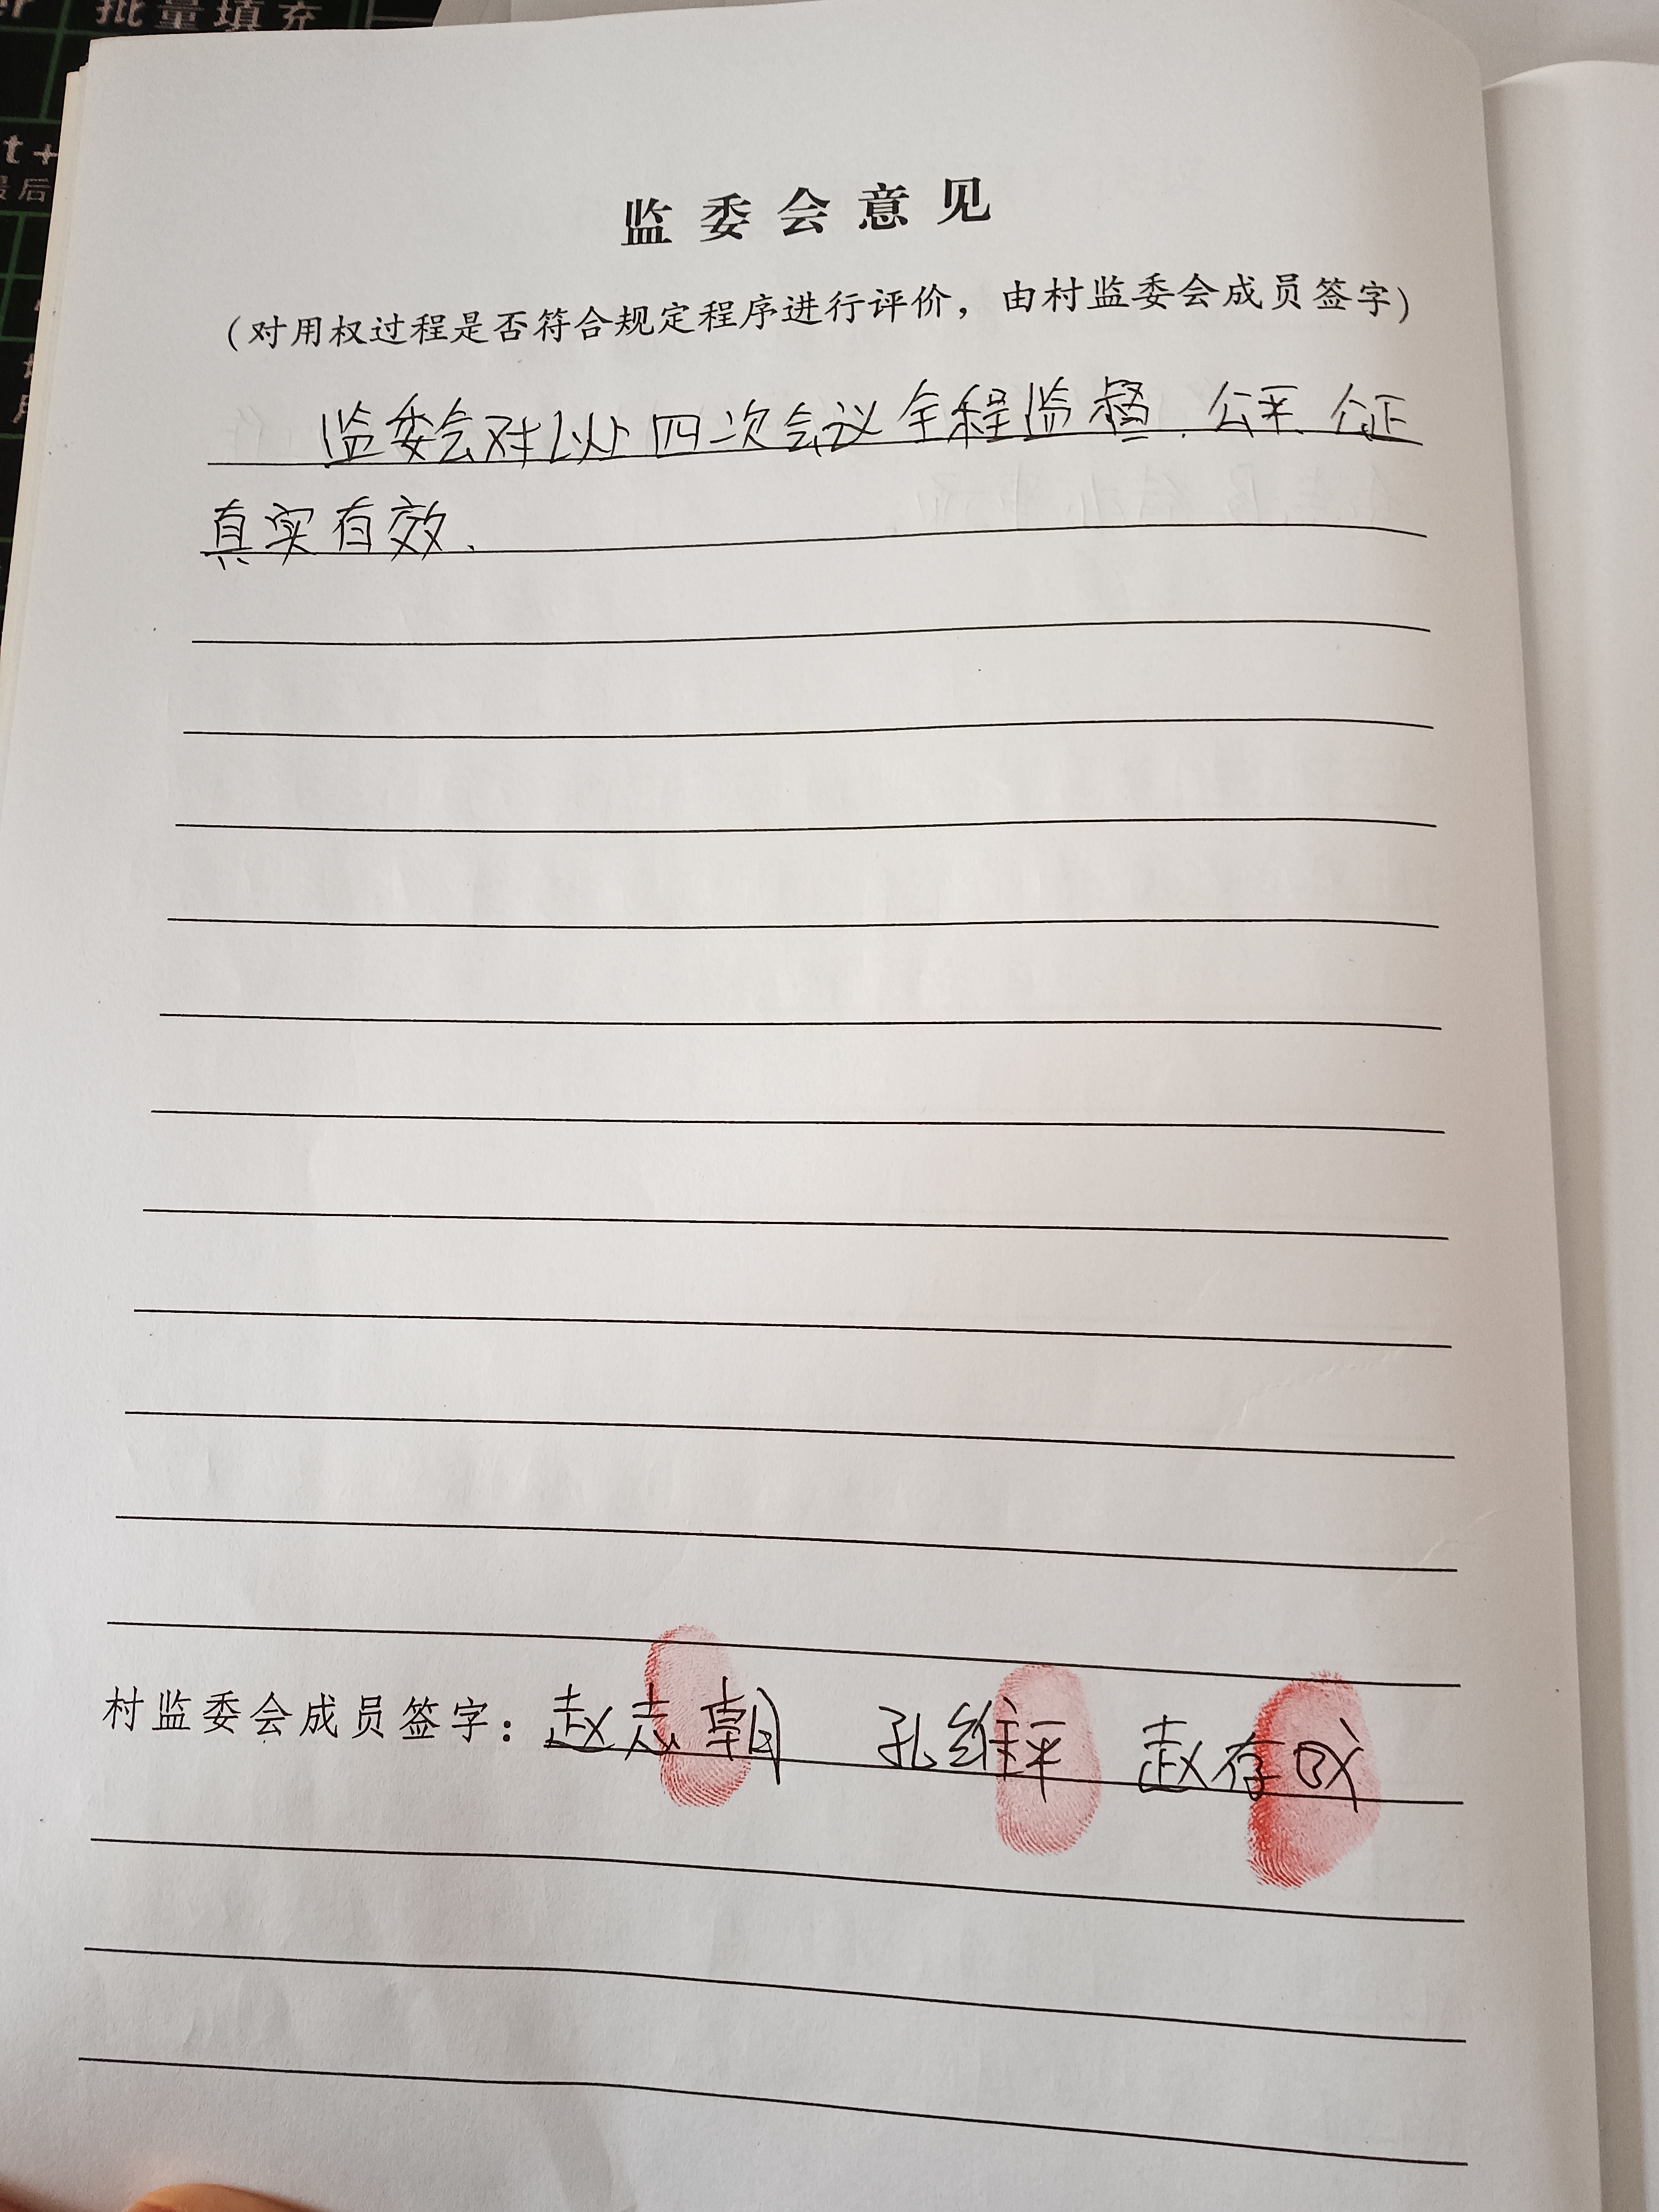 er 批量填充
t+
最后
监委会意见
(对用权过程是否符合规定程序进行评价，由村监委会成员签字)
监委会对以上四次会议全程监督．公平．公正
真实有效．
村监委会成员签字：赵志朝 孔维平 赵存成